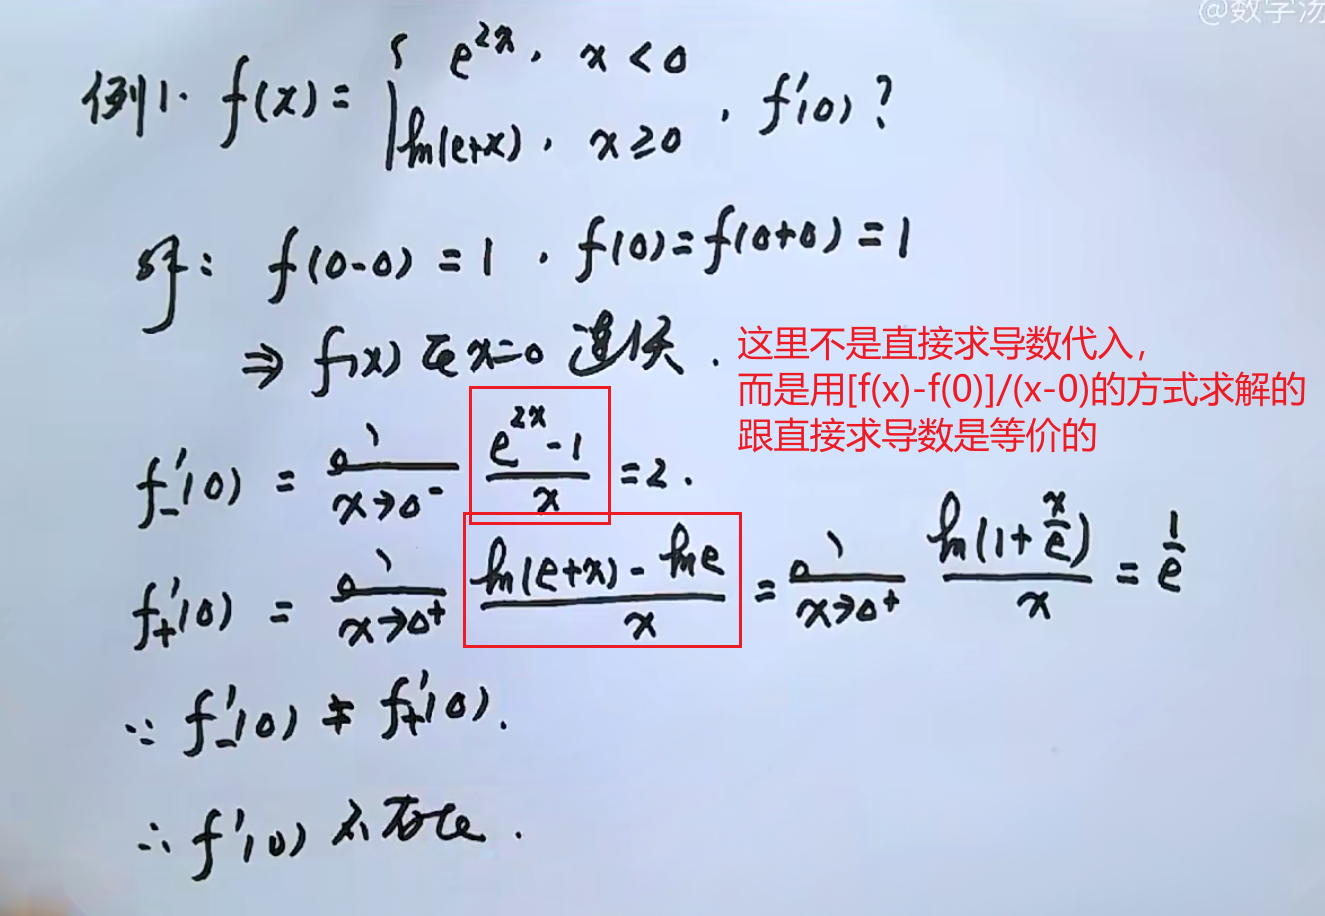 @数字汤
例1. f(x) = { e^{2x}, x < 0
ln(e+x), x ≥ 0 , f'(0)?
解: f(0-0) = 1 . f(0) = f(0+0) = 1
⇒ f(x) 在 x=0 连续 .
这里不是直接求导数代入，
而是用[f(x)-f(0)]/(x-0)的方式求解的
跟直接求导数是等价的
f₋'(0) = lim_{x→0⁻} (e^{2x} - 1)/x = 2 .
f₊'(0) = lim_{x→0⁺} (ln(e+x) - ln e)/x = lim_{x→0⁺} ln(1 + x/e)/x = 1/e
∵ f₋'(0) ≠ f₊'(0).
∴ f'(0) 不存在 .